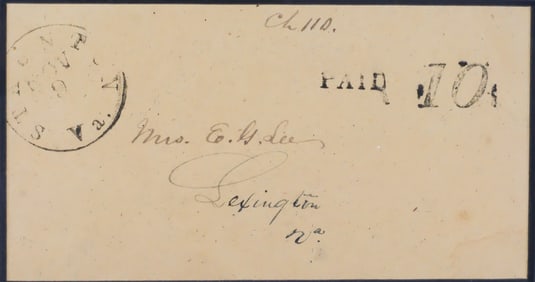 Ch 110.
STAUNTON
NOV
Va.
PAID 10
Mrs. E. G. Lee
Lexington
Va.